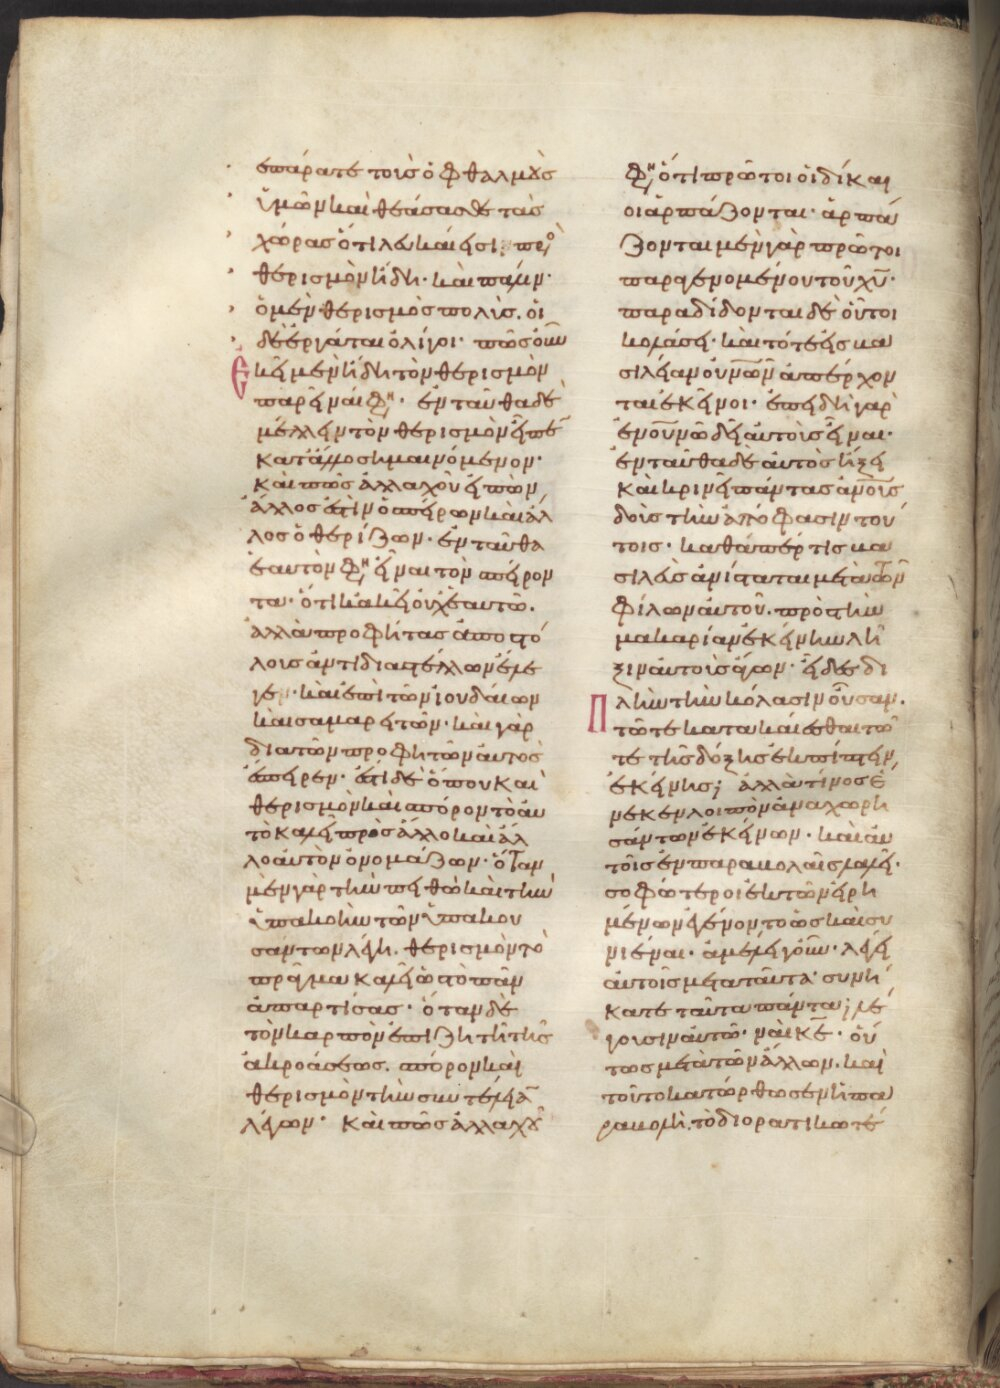 ἐπάρατε τοὺς ὀφθαλμοὺς
ὑμῶν καὶ θεάσασθε τὰς
χώρας ὅτι λευκαί εἰσι πρὸς
θερισμὸν ἤδη· καὶ πάλιν·
ὁ μὲν θερισμὸς πολὺς. οἱ
δὲ ἐργάται ὀλίγοι· πῶς οὖν
ἐκεῖ μὲν ἤδη τὸν θερισμὸν
παρεῖναί φησιν· ἐνταῦθα δὲ
μέλλειν τὸν θερισμὸν εἶπε
κατ' ἄλλο σημαινόμενον·
καὶ πῶς ἀλλαχοῦ εἰπὼν
ἄλλος ἐστὶν ὁ σπείρων καὶ ἄλ
λος ὁ θερίζων· ἐνταῦθα
ἑαυτόν φησιν εἶναι τὸν σπείρον
τα· ὅτι κἀκεῖ οὐχ ἑαυτῶ.
ἀλλὰ προφήτας ἀποστό
λοις ἀντιδιαστέλλων ἔλε
γεν· καὶ ἐπὶ τῶν ἰουδαίων
καὶ σαμαρειτῶν· καὶ γὰρ
διὰ τῶν προφητῶν αὐτὸς
ἔσπειρεν· ἔστι δὲ ὅπου καὶ
θερισμὸν καὶ σπόρον τὸ αὐ
τὸ καλεῖ πρὸς ἄλλο καὶ ἄλ
λο αὐτὸν ὀνομάζων· ὅταν
μὲν γὰρ τὴν πειθὼ καὶ τὴν
ὑπακοὴν τῶν ὑπακου
σάντων λέγη. θερισμὸν τὸ
πρᾶγμα καλεῖ ὡς τὸ πᾶν
ἀπαρτίσας· ὅταν δὲ
τὸν καρπὸν ἐπιζητῆ τῆς
ἀκροάσεως. σπόρον καὶ
θερισμὸν τὴν συντέλειαν
λέγων· Καὶ πῶς ἀλλαχοῦ
φησιν ὅτι πρῶτοι οἱ δίκαι
οι ἁρπάζονται· ἁρπά
ζονται μὲν γὰρ πρῶτοι
παραγενομένου τοῦ χυ·
παραδίδονται δὲ οὗτοι
κολάσει· καὶ τότε εἰς βα
σιλείαν οὐνῶν ἀπέρχον
ται ἐκεῖνοι· ἐπειδὴ γὰρ
ἐν οὐνῶ δεῖ αὐτοὺς εἶναι·
ἐνταῦθα δὲ αὐτὸς ἥξει
καὶ κρινεῖ πάντας ἀνοῦς
δοὺς τὴν ἀπόφασιν τού
τοις· καθάπερ τις βα
σιλεὺς ἀνίσταται μετὰ τῶν
φίλων αὐτοῦ. πρὸς τὴν
μακαρίαν ἐκείνην λῆ
ξιν αὐτοὺς ἄγων· εἶδες δι
πλῆν τὴν κόλασιν οὖσαν.
τῶ τε κατακαίεσθαι τῶ
τε τῆς δόξης ἐκπίπτειν,
ἐκείνης; ἀλλὰ τίνος ἕ
νεκεν λοιπὸν ἀναχωρη
σάντων ἐκείνων· καὶ αὐ
τοῖς ἐν παραβολαῖς λαλεῖ·
σοφώτεροι ἐκ τῶν εἰρη
μένων ἐγένοντο ὡς καὶ συ
νιέναι· ἀμέλει γοῦν· λέγει
αὐτοῖς μετὰ ταῦτα· συνή
κατε ταῦτα πάντα; λέ
γουσιν αὐτῶ· ναὶ κε· οὕ
τως μετὰ τῶν ἄλλων. καὶ
τοῦτο κατώρθωσεν ἡ πα
ραβολὴ. τὸ διορατικωτέ